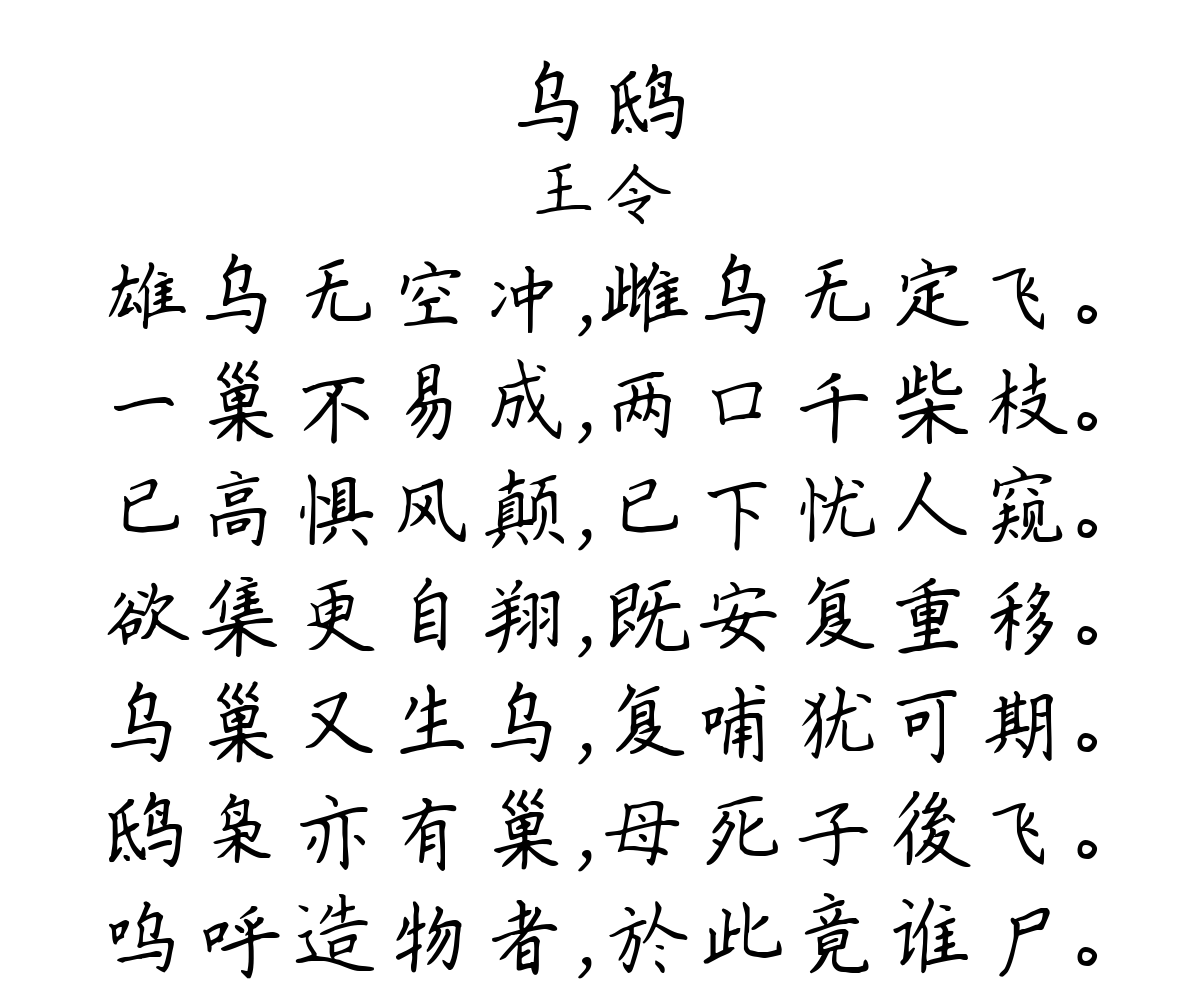 乌鸱
王令
雄乌无空冲,雌乌无定飞。
一巢不易成,两口千柴枝。
已高惧风颠,已下忧人窥。
欲集更自翔,既安复重移。
乌巢又生乌,复哺犹可期。
鸱枭亦有巢,母死子後飞。
呜呼造物者,於此竟谁尸。